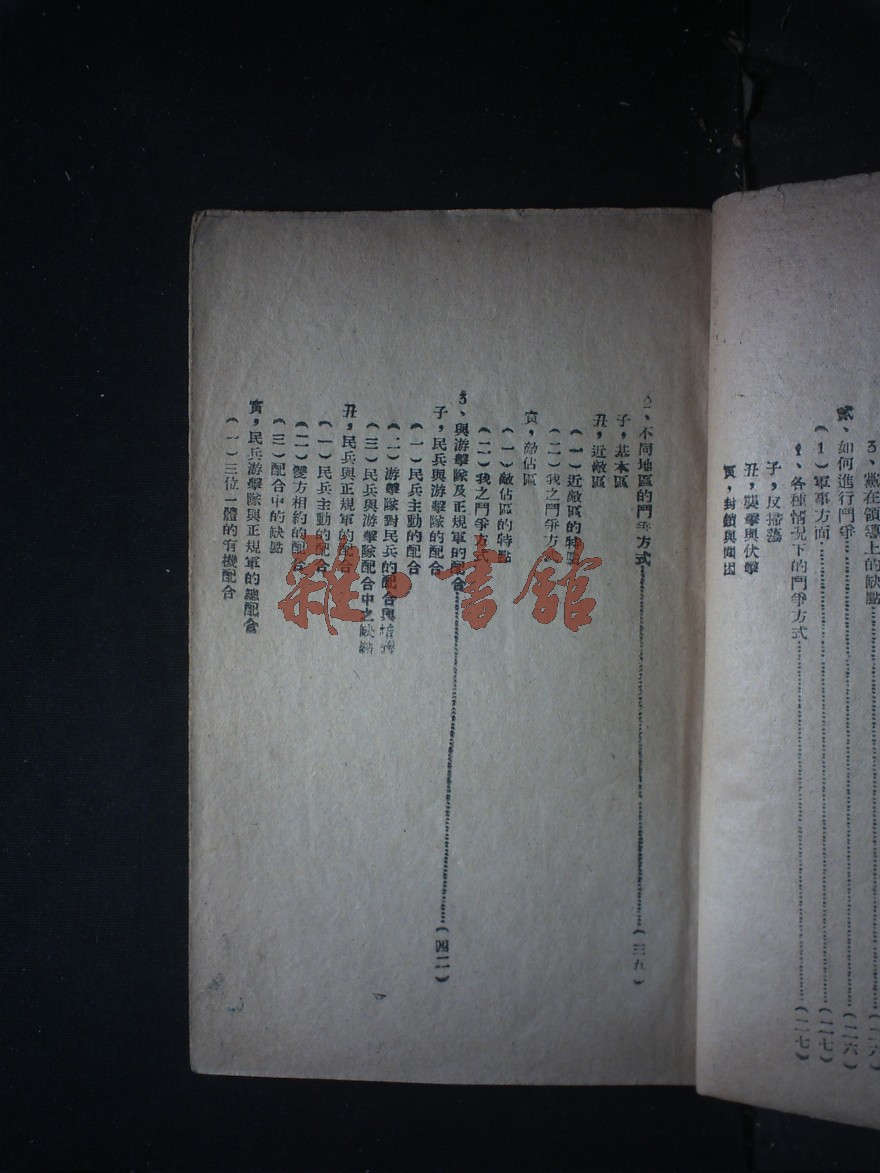 3、黨在領導上的缺點……(二六)
貳、如何進行鬥爭……(二六)
(1)軍事方面……(二七)
1、各種情况下的鬥爭方式……(二七)
子，反掃蕩
丑，襲擊與伏擊
寅，封鎖與圍困
2、不同地區的鬥爭方式……(三九)
子，基本區
丑，近敵區
(一)近敵區的特點
(二)我之鬥爭方式
寅，敵佔區
(一)敵佔區的特點
(二)我之鬥爭方式
3、與游擊隊及正規軍的配合……(四二)
子，民兵與游擊隊的配合
(一)民兵主動的配合
(二)游擊隊對民兵的配合與
(三)民兵與游擊隊配合中之缺點
丑，民兵與正規軍的配合
(一)民兵主動的配合
(二)雙方相約的配合
(三)配合中的缺點
寅，民兵游擊隊與正規軍的總配合
(一)三位一體的有機配合
雜·書館